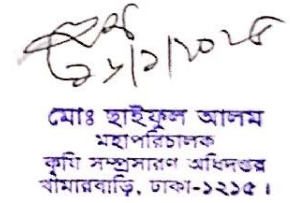 মোঃ ছাইফুল আলম
মহাপরিচালক
কৃষি সম্প্রসারণ অধিদপ্তর
খামারবাড়ি, ঢাকা-১২১৫।